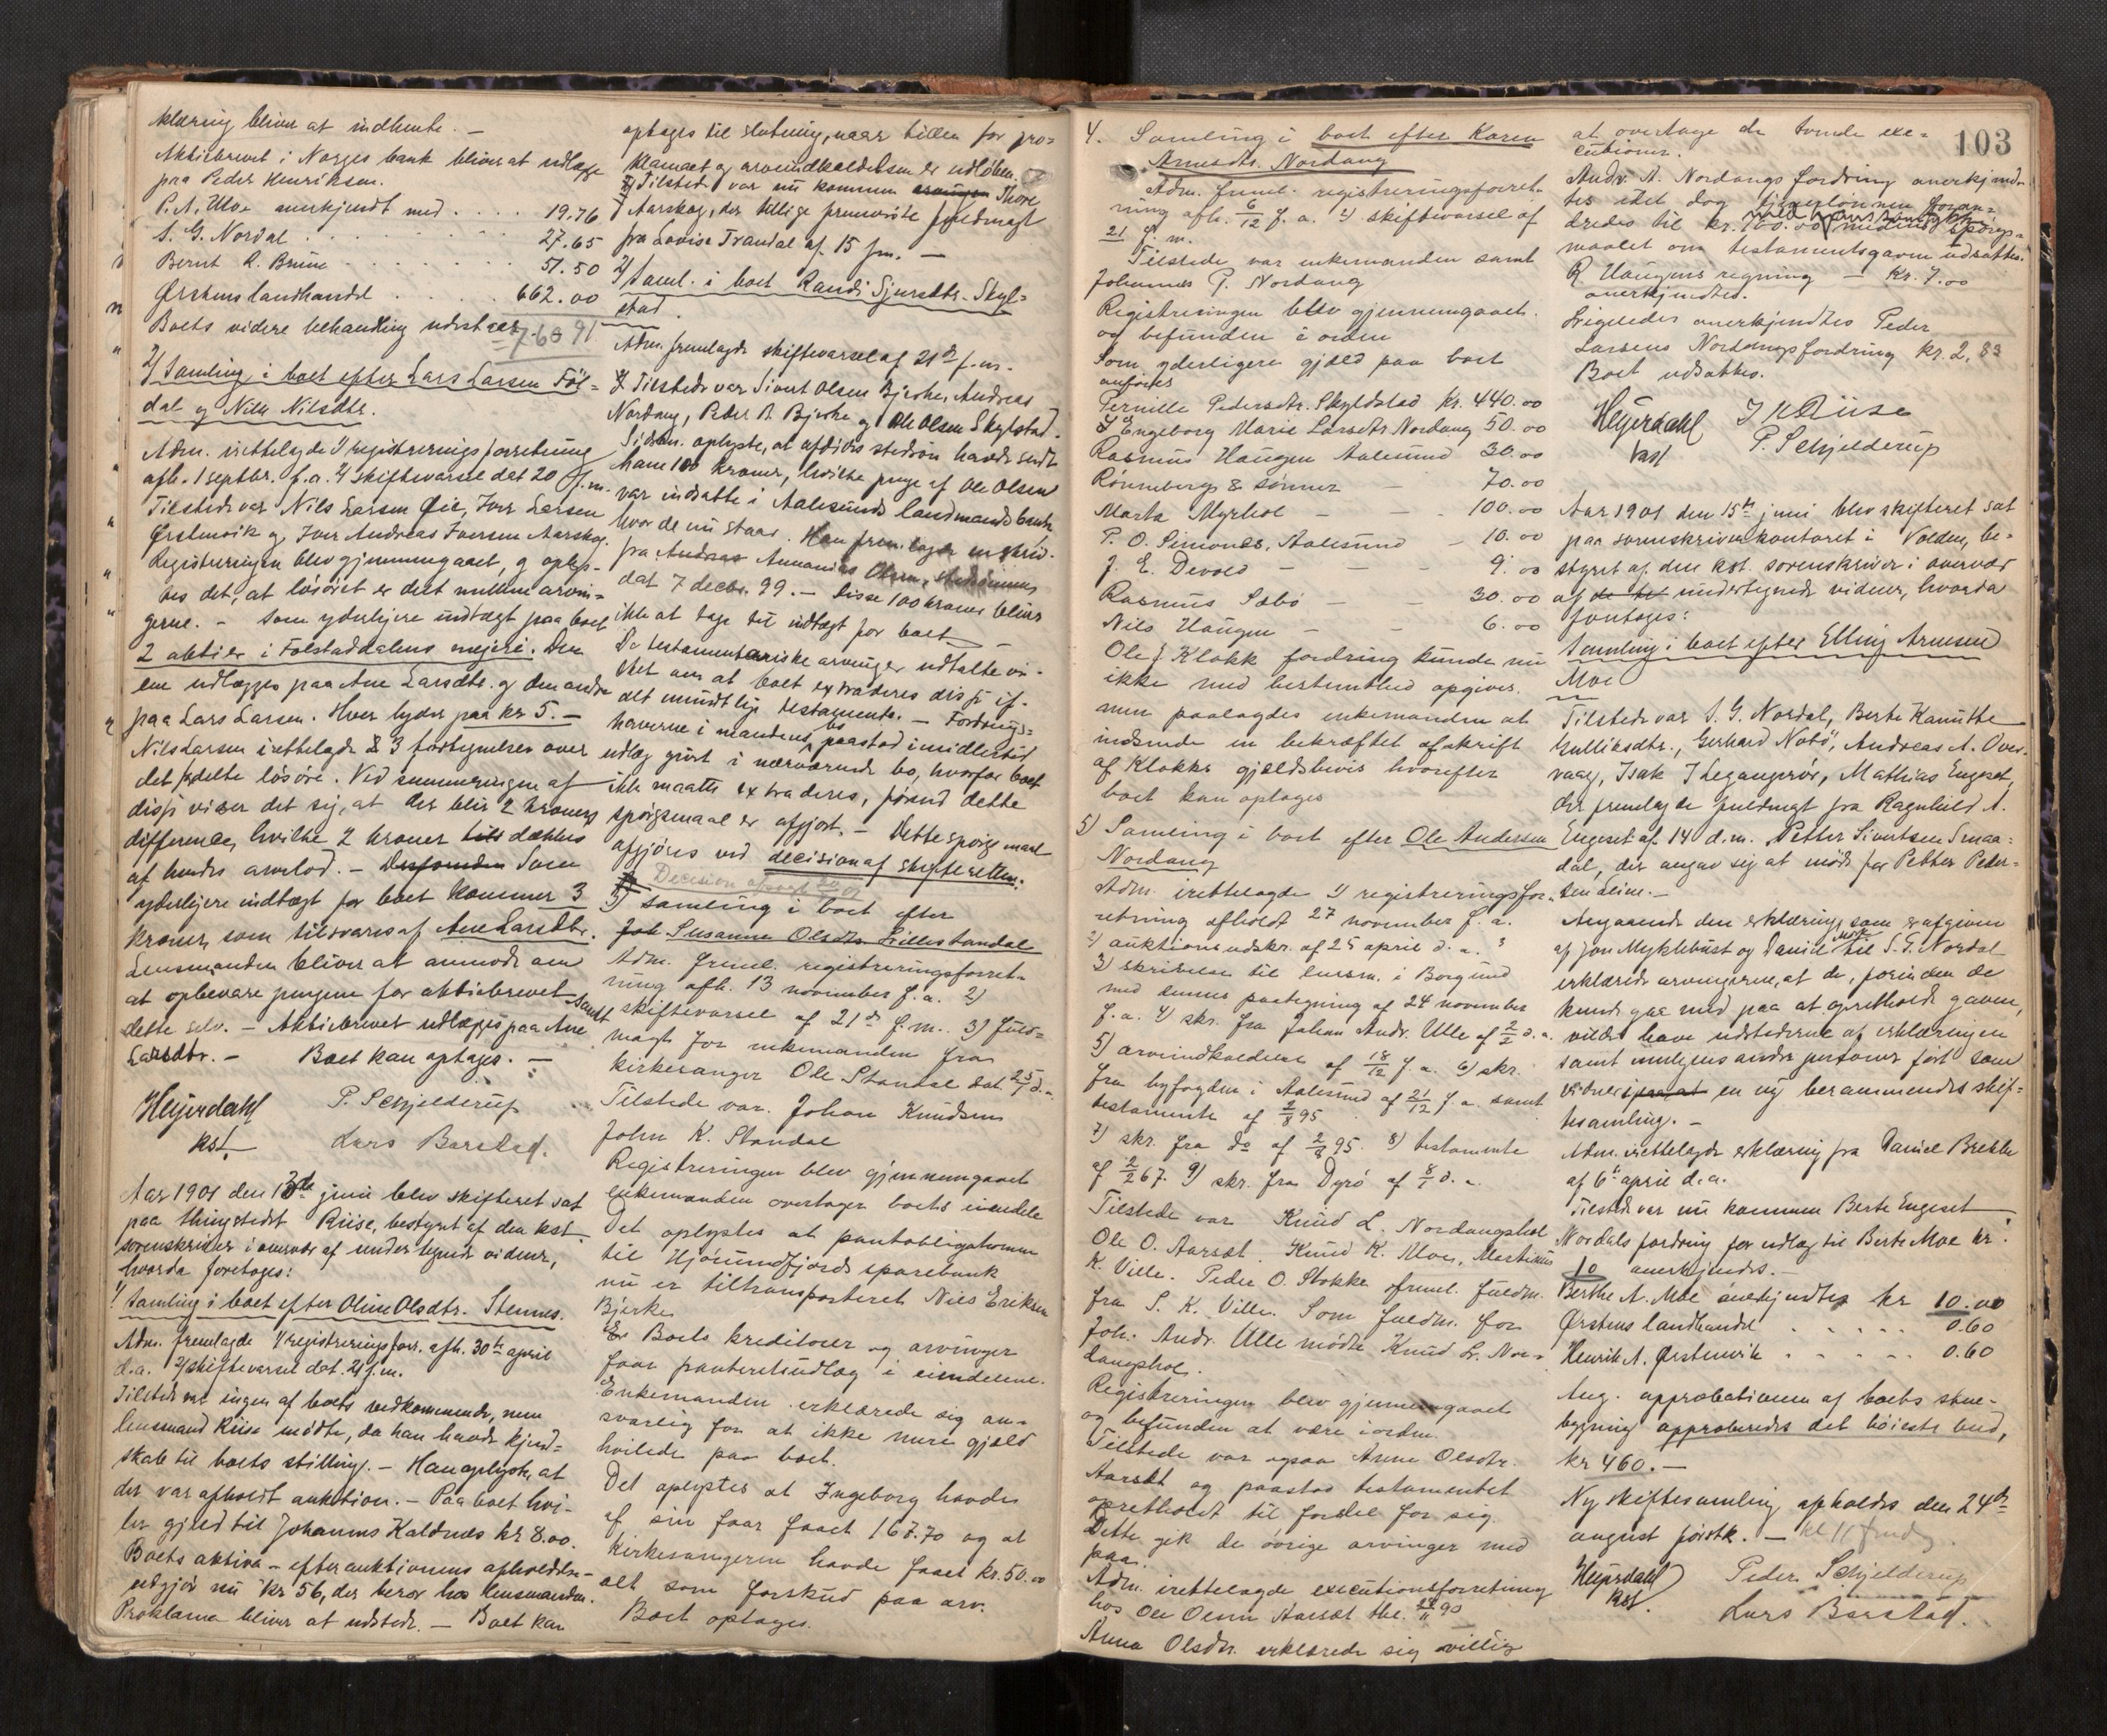 klæring bliver at indhente. —
Aktiebrevet i Norges bank bliver at udlægge
paa Peder Henriksen.
P. A. Ulve anerkjendt med . . . . 19.76
S. G. Nordal . . . . 27.65
Bernt R. Brune . . . . 51.50
Ørstens landhandel . . . . 662.00
Boets videre behandling udsættes.
2) Samling i boet efter Lars Larsen Föl-
dal og Nille Nilsdtr.
Adm. irettelagde 1) registreringsforretning
afh. 1 septbr. f.a. 2) skiftevarsel dat 20 f.m.
Tilstede var Nils Larsen Øie, Iver Larsen
Ørstenvik og Iver Andreas Iversen Aarskog.
Registreringen blev gjennemgaaet, og oplys-
tes det, at lösöret er delt mellem arvin-
gerne. – Som yderligere indtægt paa boet
2 aktier i Folstaddalens mejeri. Den
ene udlægges paa Ane Larsdtr. og den andre
paa Lars Larsen. Hver lyder paa kr 5. —
Nils Larsen irettelagde 3 fortegnelser over
det fordelte lösöre. Ved summeringen af
disse viser det sig, at der blir 2 kroners
difference, hvilke 2 kroner dækkes
af hendes arvelod. – Som
yderligere indtægt for boet kommer 3
kroner, som tilsvares af Ane Larsdtr.
Lensmanden bliver at anmode om
at opbevare pengene for aktiebrevet samt
dette selv. – Aktiebrevet udlægges paa Ane
Larsdtr. – Boet kan optages. —
Heyerdahl P. Schjelderup
kst. Lars Barstad.
Aar 1901 den 13de juni blev skifteret sat
paa thingstedet Riise, bestyret af den kst.
sorenskriver i overvær af undertegnede vidner,
hvorda foretoges:
1) Samling i boet efter Oline Olsdtr. Stennes.
Adm. fremlagde 1) registreringsforr. afh. 30te april
d.a. 2) skiftevarsel dat. 21 f.m.
Tilstede var ingen af boets vedkommende, men
lensmand Riise mödte, da han havde kjend-
skab til boets stilling. – Han oplyste, at
der var afholdt auktion. – Paa boet hvi-
ler gjeld til Johannes Kaldnes kr 8.00.
Boets aktiva – efter auktionens afholdelse –
udgjör nu kr 56, der beror hos lensmanden.
Proklama bliver at udstede. — Boet kan
optages til slutning, naar tiden for pro-
klamaet og arveindkaldelsen er udlöben.
Tilstede var nu kommen Thore
Aarskog, der tillige fremviste fuldmagt
fra Lovise Trandal af 15 f.m. —
2) Saml. i boet Randi Sjursdtr. Skyl-
stad.
Adm. fremlagde skiftevarsel af 21de f.m.
Tilstede var Sivert Olsen Bjerke, Andreas
Nordang, Peder R. Bjerke og Ole Olsen Skylstad.
Sidstn. oplyste, at afdödes stedsön havde sendt
ham 100 kroner, hvilke penge af Ole Olsen
var indsatte i Aalesunds landmandsbank,
hvor de nu staar. Han fremlagde en skriv.
fra Andreas Annanias Olsen, stedsönnen
dat 7 decbr. 99. – Disse 100 kroner bliver
ikke at tage til indtægt for boet —
De testamentariske arvinger udtalte vi-
det mundtlige testamente. – Fordrings-
haverne i mandens bo paastod imidlertid
udlæg givet i nærværende bo, hvorfor boet
ikke maatte extraderes, förend dette
spörgsmaal er afgjort. – Dette spörgsmaal
afgjöres ved decision af skifteretten.
3) Samling i boet efter
Susanne Olsdtr. Lillestandal
Adm. freml. registreringsforret-
ning afh. 13 november f.a. 2)
skiftevarsel af 21de f.m. 3) fuld-
magt for enkemanden fra
kirkesanger Ole Standal
Tilstede var Johan Knudsen
John K. Standal
Registreringen blev gjennemgaaet
enkemanden overtager boets eiendele
Det oplystes at pantobligationen
til Hjörundfjords sparebank
nu er tiltransporteret Nils Eriksen
Bjerke
Boets kreditorer og arvinger
faar panteretsudlæg i eiendelene.
Enkemanden erklærede sig an-
svarlig for at ikke mere gjæld
hvilede paa boet.
Det oplystes at Ingeborg havde
af sin faar faaet 167.70 og at
kirkesangeren havde faaet kr. 50.00
alt som forskud paa arv.
Boet optages.
103
4. Samling i boet efter Karen
Arnesdtr. Nordang
Adm. freml. registreringsforret-
ning afh. 6/12 f.a. 2) skiftevarsel af
21 f.m.
Tilstede var enkemanden samt
Johannes P. Nordang
Registreringen blev gjennemgaaet
og befunden i orden
Som yderligere gjæld paa boet
anföres
Pernille Pedersdtr. Skyldstad kr. 440.00
Engeborg Marie Larsdtr. Nordang 50.00
Rasmus Haugen Aalesund 30.00
Rönneberg & Sönner — 70.00
Marta Myrhol — — 100.00
P. O. Simones, Aalesund — 10.00
J. E. Devold — — — 9.00
Rasmus Sæbö — — 30.00
Nils Haugen — — 6.00
Ole Klokk fordring kunde nu
ikke med bestemthed opgives.
men paalagdes enkemanden at
indsende en bekræftet afskrift
af Klokks gjældsbevis hvorefter
boet kan optages
5) Samling i boet efter Ole Andersen
Nordang
Adm. irettelagde 1) registreringsfor-
retning afholdt 27 november f.a.
2) auktionsudskr. af 25 april d.a.
3) skrivelse til lensm. i Borgund
med dennes paategning af 24 november
f.a. 4) skr. fra Johan Andr. Ulle af 2/2 d.a.
5) arveindkaldelse af 18/12 f.a. 6) skr.
fra byfogden i Aalesund af 21/12 f.a. samt
testamente af 2/8 95
7) skr. fra do af 2/8 95. 8) testamente
af 2/2 67. 9) skr. fra Dyrö af 8/1 d.a.
Tilstede var Knud L. Nordangshol
Ole O. Aarset. Knud K. Moe, Martinus
K. Ville. Peder O. Stokke freml. fuldm.
fra S. K. Ville. Som fuldm. for
Joh. Andr. Ulle mödte Knud L. Nor-
dangshol.
Registreringen blev gjennemgaaet
og befunden at være i orden.
Tilstede var ogsaa Anne Olsdtr.
Aarset og paastod testamentet
opretholdt til fordel for sig.
Dette gik de övrige arvinger med
paa.
Adm. irettelagde executionsforretning
hos Ole Olsen Aarset
Anna Olsdtr. erklærede sig villig
at overtage de tvende exe-
cutioner.
Andr. A. Nordangs fordring anerkjend-
tes idet dog tjenerlönnen foran-
dredes til kr. 100.00 med hans samtykke medens spörgs-
maalet om testamentsgaven udsattes.
R. Haugens regning — kr. 7.00
anerkjendtes.
Ligeledes anerkjendtes Peder
Larsens Nordangs fordring kr. 2,83
Boet udsattes.
Heyerdahl J K Riise
kst P. Schjelderup
Aar 1901 den 15de juni blev skifteret sat
paa sorenskriverkontoret i Volden, be-
styret af den kst. sorenskriver i overvær
af undertegnede vidner, hvorda
foretoges:
Samling i boet efter Elling Arnesen
Moe
Tilstede var S. G. Nordal, Berte Kanutte
Gulliksdtr., Gerhard Notö, Andreas A. Over-
vaag, Isak J Legangerör, Mathias Engeset,
der fremlagde fuldmagt fra Ragnhild A.
Engeset af 14 d.m. Petter Sivertsen Smaa-
dal, der angav sig at möde for Petter Peder-
sen Leine. —
Angaaende den erklæring som er afgiven
af Jon Myklebust og Daniel til S. G. Nordal
erklærede arvingerne, at de, forinden de
kunde gaa med paa at opretholde gaven,
vilde have udstederne af erklæringen
samt muligens andre personer fört som
vidner en ny berammendes skif-
tesamling. –
Adm. irettelagde erklæring fra Daniel Brekke
af 6te april d.a.
Tilstede var nu kommen Berte Engeset
Nordals fordring for udlæg til Berte Moe kr.
10 anerkjendes. —
Berthe A. Moe anerkjendtes kr 10.00
Ørstens landhandel . . . . . 0.60
Henrik A. Ørstenvik . . . . . 0.60
Ang. approbationen af boets stue-
bygning approberedes det höieste bud,
kr 460. —
Ny skiftesamling afholdes den 24de
august förstk. —
Heyerdahl Peder Schjelderup
kst. Lars Barstad.